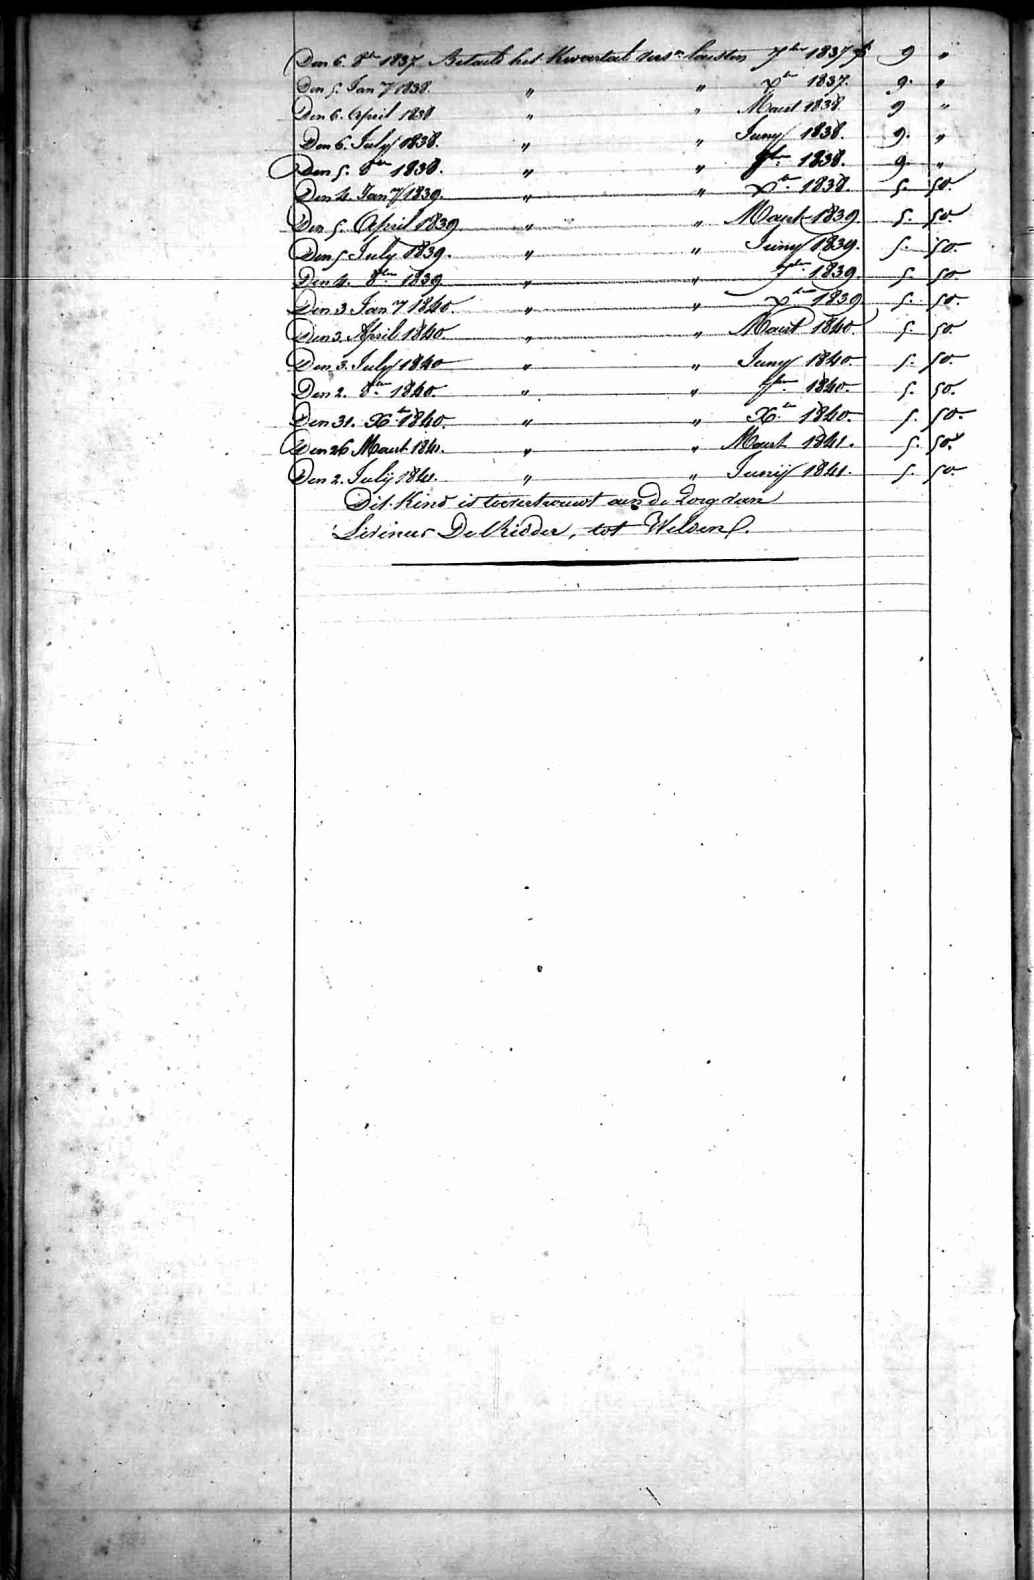 Den 6. 8ber 1837 Betaald het Kwartaal versn. laasten 7ber 1837 f 9 "
Den 5. Jany 1838. " " Xber 1837. 9. "
Den 6. April 1838 " " Maart 1838. 9 "
Den 6. July 1838. " " Juny 1838. 9. "
Den 5. 8ber 1838. " " 7ber 1838. 9. "
Den 4. Jany 1839. " " Xber 1838. 5. 50.
Den 5. April 1839 " " Maart 1839. 5. 50
Den 5 July 1839. " " Juny 1839. 5. 50.
Den 4. 8ber 1839 " " 7ber 1839. 5. 50
Den 3 Jany 1840. " " Xber 1839 5. 50.
Den 3. April 1840. " " Maart 1840 5. 50
Den 3. July 1840 " " Juny 1840. 5. 50.
Den 2. 8ber 1840. " " 7ber 1840 5. 50.
Den 31. Xber 1840. " " Xber 1840. 5. 50.
Den 26 Maart 1841. " " Maart 1841. 5. 50.
Den 2. Julij 1841. " " Junij 1841. 5. 50.
Dit Kind is toevertrouwt aan De Zorg van
Livinus De Ridder, tot Welden.